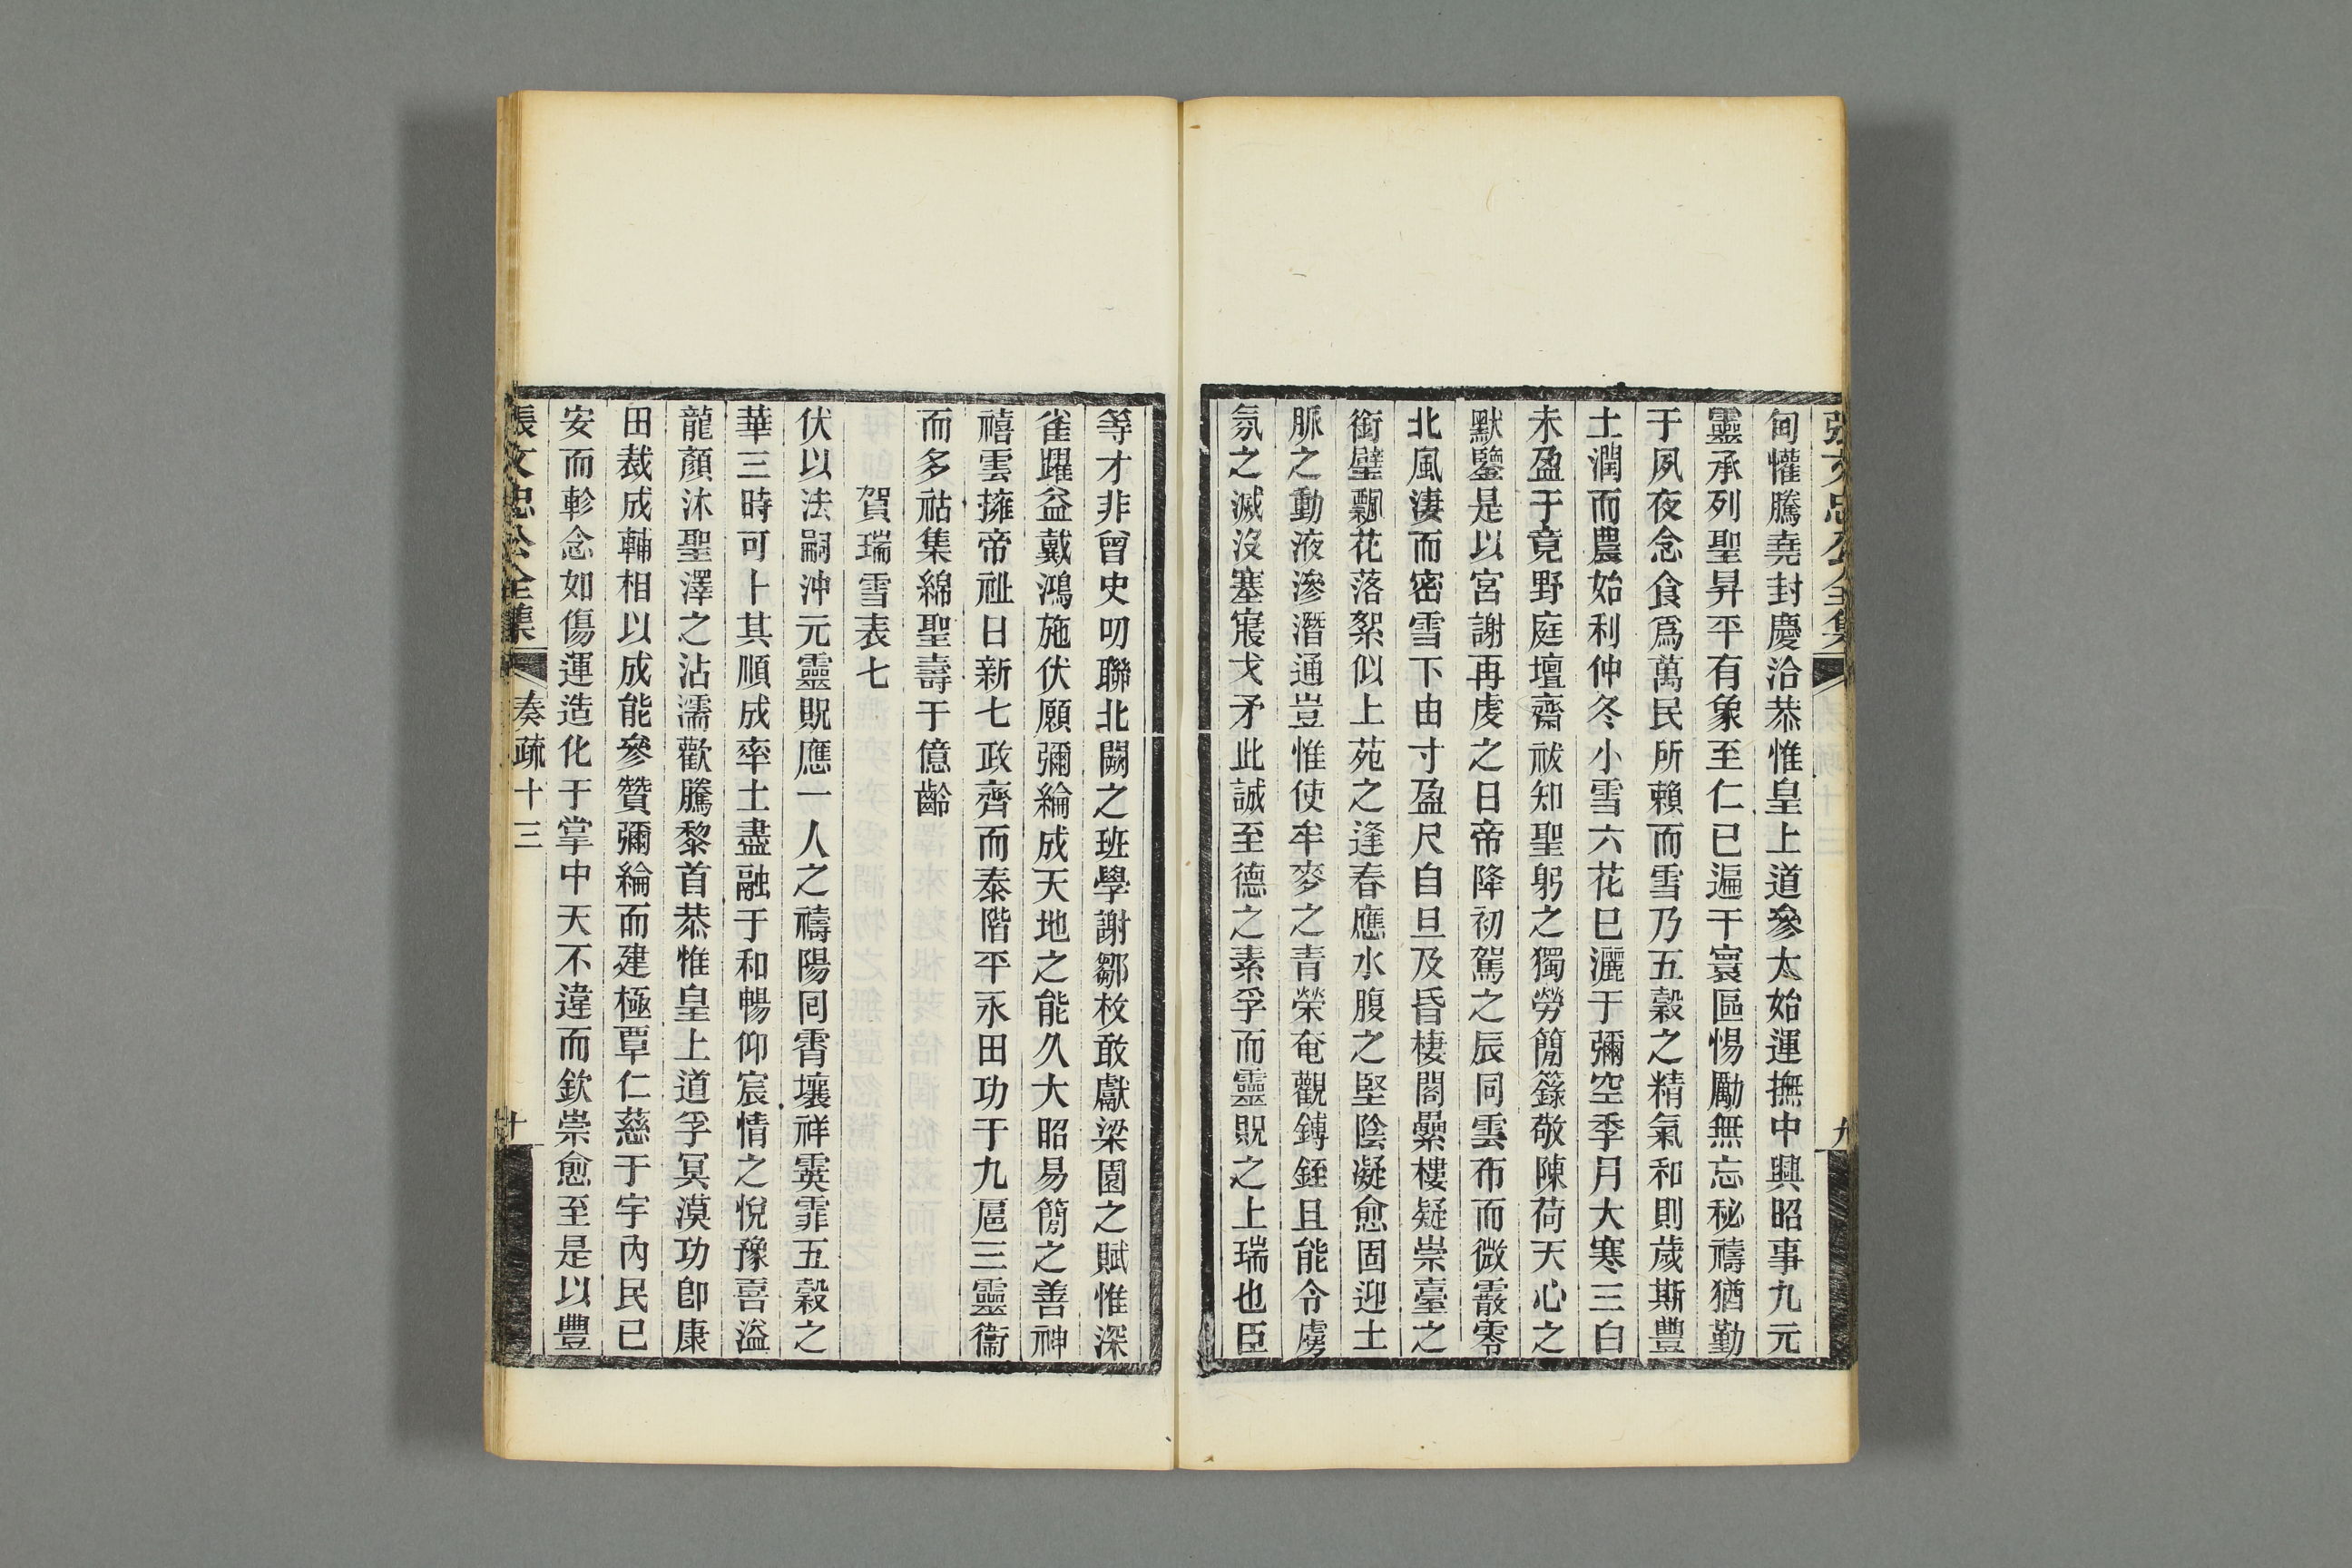 張文忠公全集
九
甸懽騰堯封慶洽恭惟皇上道參太始運撫中興昭事九元
靈承列聖昇平有象至仁已遍于寰區惕勵無忘秘禱猶勤
于夙夜念食爲萬民所賴而雪乃五穀之精氣和則歲斯豐
土潤而農始利仲冬小雪六花已灑于彌空季月大寒三白
未盈于竟野庭壇齋祓知聖躬之獨勞簡籙敬陳荷天心之
默鑒是以宮謝再虔之日帝降初駕之辰同雲布而微霰零
北風淒而密雪下由寸盈尺自旦及昏棲閣纍樓疑崇臺之
銜璧飄花落絮似上苑之逢春應水腹之堅陰凝愈固迎土
脈之動液滲潛通豈惟使牟麥之青榮奄觀鎛銍且能令虜
氛之滅沒塞寢戈矛此誠至德之素孚而靈貺之上瑞也臣
等才非曾史叨聯北闕之班學謝鄒枚敢獻梁園之賦惟深
雀躍益戴鴻施伏願彌綸成天地之能久大昭易簡之善神
禧雲擁帝祉日新七政齊而泰階平永田功于九扈三靈衞
而多祜集綿聖壽于億齡
賀瑞雪表七
伏以法嗣沖元靈貺應一人之禱陽回霄壤祥霙霏五穀之
華三時可卜其順成率土盡融于和暢仰宸情之悅豫喜溢
龍顏沐聖澤之沾濡歡騰黎首恭惟皇上道孚冥漠功卽康
田裁成輔相以成能參贊彌綸而建極覃仁慈于宇內民已
安而軫念如傷運造化于掌中天不違而欽崇愈至是以豐
張文忠公全集
奏疏十三
十